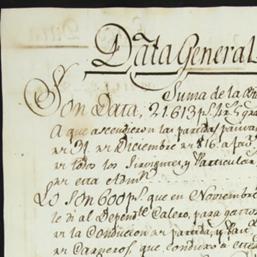 Data General
Suma de la
Son Data, 21.613 p.s 4 r.s 5 gra
A que ascendieron las partidas
en 31 de Diciembre de 816. a
de todos los Sirvientes, y Particular
de esta
Lo Son 600 p.s que en Noviembre
le di al Depend.te Calero, para gastos
de la Conducion de partida, y
de Carneros, que condujo a